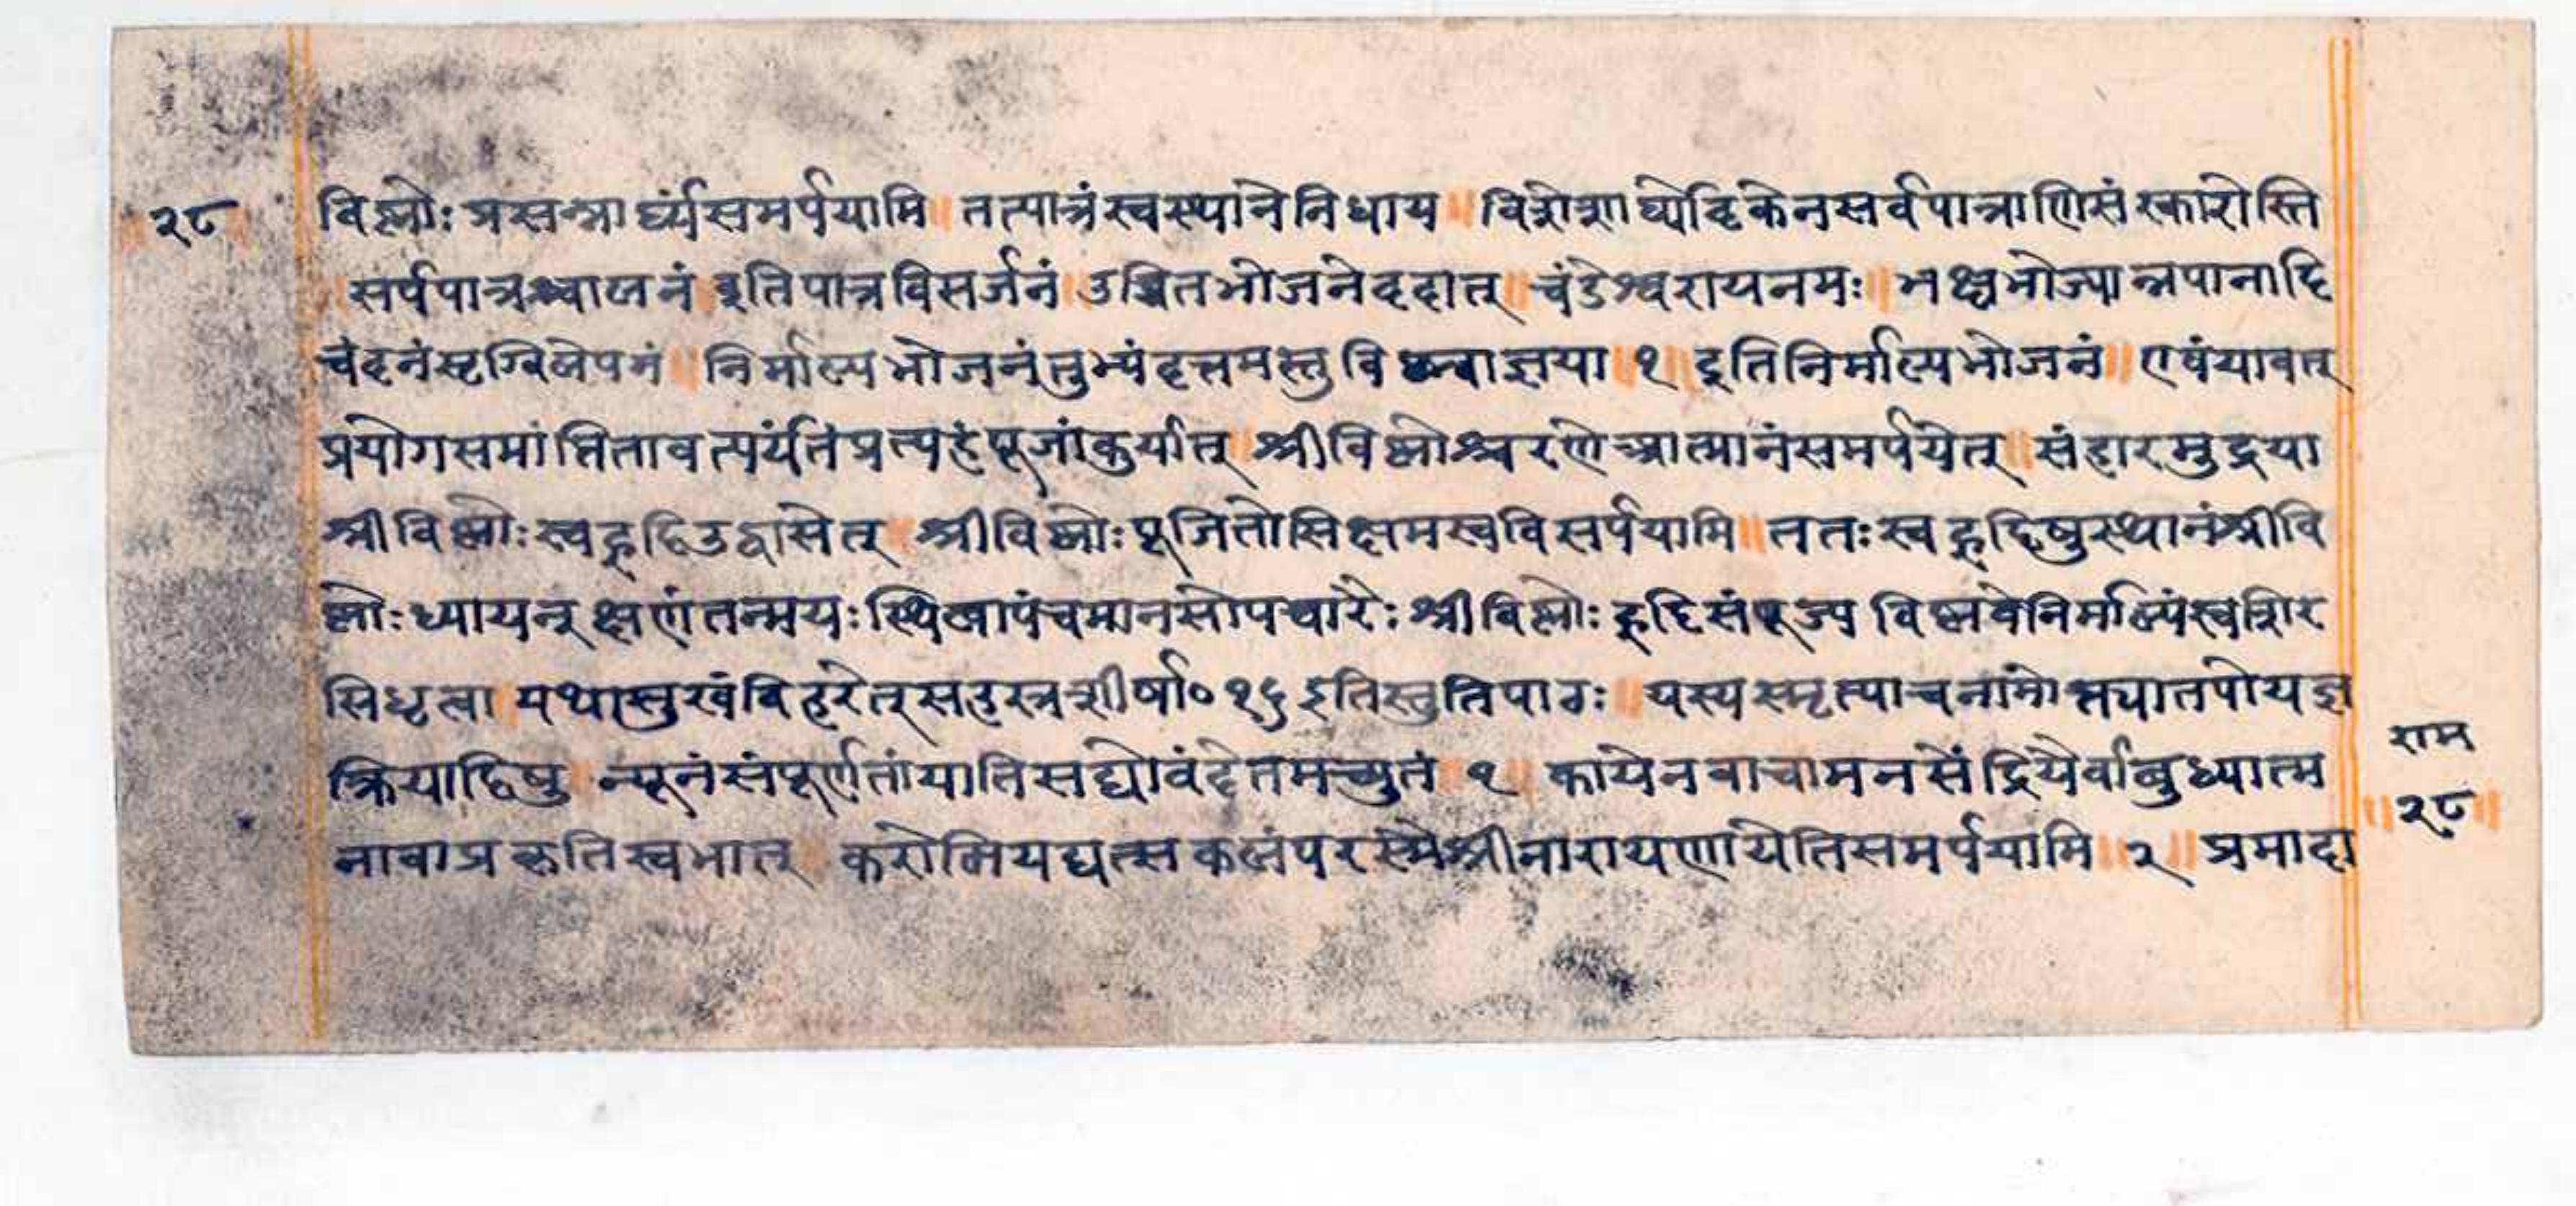 २८
विष्णोः प्रसन्नार्घ्यंसमर्पयामि ॥ तत्पात्रंस्वस्थानेनिधाय ॥ विशेशार्घ्योदिकेनसर्वपात्राणिसंस्कारोस्ति
सर्पपात्रक्ष्वालनं इतिपात्रविसर्जनं ॥ उचितभोजनेददात् ॥ चंडेश्वरायनमः ॥ भक्ष्यभोज्यान्नपानादि
चंदनंसृग्विलेपनं ॥ निर्माल्यभोजनंतुभ्यंदत्तमस्तुविष्ण्वाज्ञया ॥ १ ॥ इतिनिर्माल्यभोजनं ॥ एवंयावत्
प्रयोगसमांप्तितावत्पर्यंतंप्रत्यहंपूजांकुर्यात् ॥ श्रीविष्णोश्चरणेआत्मानंसमर्पयेत् ॥ संहारमुद्रया
श्रीविष्णोः स्वहृदिउद्वासेत् ॥ श्रीविष्णोः पूजितोसिक्षमस्वविसर्पयामि ॥ ततः स्वहृदिषुस्थानंश्रीवि
ष्णोः ध्यायन् क्षणंतन्मयः स्थित्वापंचमानसोपचारैः श्रीविष्णोः हृदिसंपूज्य विष्णवेनिर्माल्यंस्वशिर
सिधृत्वा यथासुखंविहरेत् सहस्रशीर्षा० १६ इतिस्तुतिपाठः ॥ यस्यस्मृत्याचनांमोक्त्यातपोयज्ञ
क्रियादिषु न्यूनंसंपूर्णतांयातिसद्योवंदेतमच्युतं १ ॥ कायेनवाचामनसेंद्रियैर्वाबुध्यात्म
नावाप्रकृतिस्वभात् ॥ करोमियद्यत्सकलंपरस्मैश्रीनारायणायेतिसमर्पयामि ॥ २ ॥ प्रमादा
राम
॥ २८ ॥